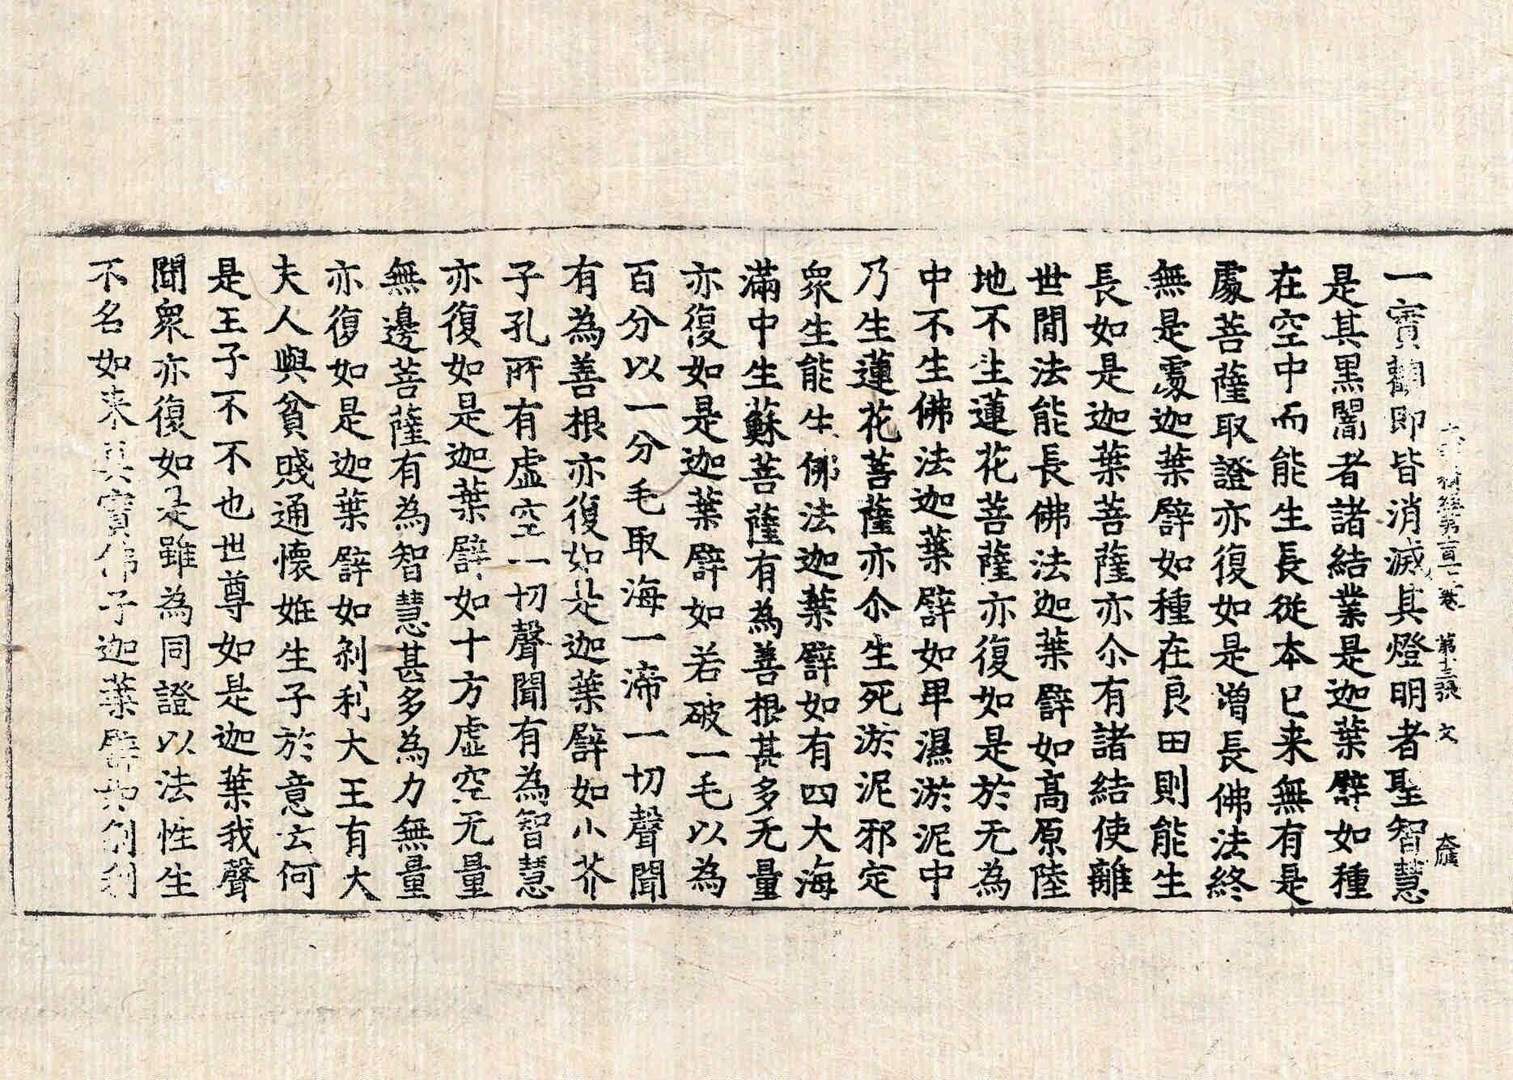 大寶積經第一百十二卷 第十三張 文
一實觀即皆消滅其燈明者聖智慧
是其黑闇者諸結業是迦葉譬如種
在空中而能生長從本已来無有是
處菩薩取證亦復如是增長佛法終
無是處迦葉譬如種在良田則能生
長如是迦葉菩薩亦尒有諸結使離
世閒法能長佛法迦葉譬如高原陸
地不生蓮花菩薩亦復如是於无為
中不生佛法迦葉譬如卑濕淤泥中
乃生蓮花菩薩亦尒生死淤泥邪定
衆生能生佛法迦葉譬如有四大海
滿中生蘇菩薩有為善根甚多无量
亦復如是迦葉譬如若破一毛以為
百分以一分毛取海一渧一切聲聞
有為善根亦復如是迦葉譬如小芥
子孔所有虛空一切聲聞有為智慧
亦復如是迦葉譬如十方虛空无量
無邊菩薩有為智慧甚多為力無量
亦復如是迦葉譬如剎利大王有大
夫人與貧賤通懷妊生子於意云何
是王子不不也世尊如是迦葉我聲
聞衆亦復如是雖為同證以法性生
不名如来真實佛子迦葉譬如剎利